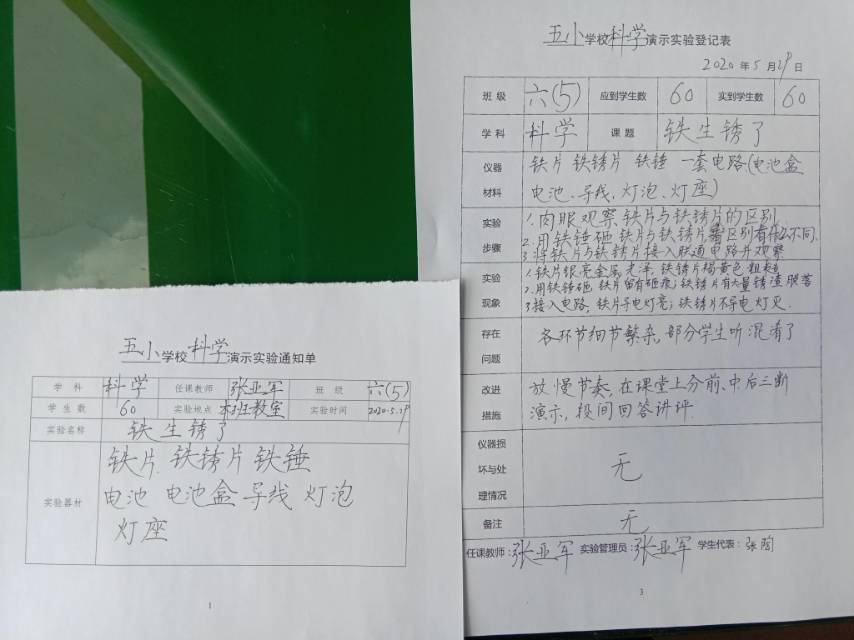 五小学校科学演示实验通知单
学科 科学 任课教师 张亚军 班级 六(5)
学生数 60 实验地点 本班教室 实验时间 2020.5.29
实验名称 铁生锈了
实验器材 铁片 铁锈片 铁锤
电池 电池盒 导线 灯泡
灯座
1
五小学校科学演示实验登记表
2020年5月29日
班级 六(5) 应到学生数 60 实到学生数 60
学科 科学 课题 铁生锈了
仪器 铁片 铁锈片 铁锤 一套电路(电池盒
材料 电池、导线、灯泡、灯座)
实验 1.肉眼观察铁片与铁锈片的区别
2.用铁锤砸铁片与铁锈片看区别有什么不同.
步骤 3.将铁片与铁锈片接入联通电路并观察
实验 1.铁片银亮金属光泽,铁锈片褐黄色粗糙
2.用铁锤砸,铁片留有砸痕;铁锈片有大量锈渣脱落
现象 3.接入电路,铁片导电灯亮;铁锈片不导电灯灭.
存在 各环节细节繁杂,部分学生听混淆了
问题
改进 放慢节奏,在课堂上分前、中、后三断
措施 演示,段间回答讲评.
仪器损
坏与处 无
理情况
备注 无
任课教师:张亚军 实验管理员:张亚军 学生代表:张
3